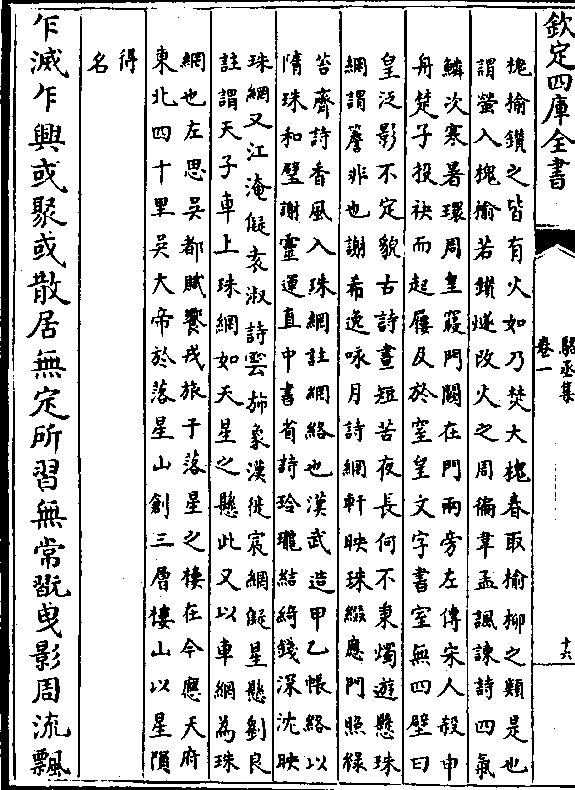 欽定四庫全書
駱丞集
卷一
十六
槐榆鑽之皆有火如乃焚大槐春取榆柳之類是也
謂螢入槐榆若鑽燧改火之周徧韋孟諷諫詩四氣
鱗次寒暑環周皇寝門闕在門兩旁左傳宋人殺申
舟楚子投袂而起屨及於窒皇文字書室無四壁曰
皇泛影不定貌古詩晝短苦夜長何不秉燭遊懸珠
網謂簷非也謝希逸咏月詩網軒映珠綴應門照緑
苔齊詩香風入珠網註網絡也漢武造甲乙帳絡以
隋珠和璧謝靈運直中書省詩玲瓏結綺錢深沈映
珠網又江淹儗袁淑詩雲斾象漢徙宸網儗星懸劉良
註謂天子車上珠網如天星之懸此又以車網為珠
網也左思吳都賦饗戎旅于落星之樓在今應天府
東北四十里吳大帝於落星山創三層樓山以星隕
得
名
乍滅乍興或聚或散居無定所習無常翫曵影周流飄